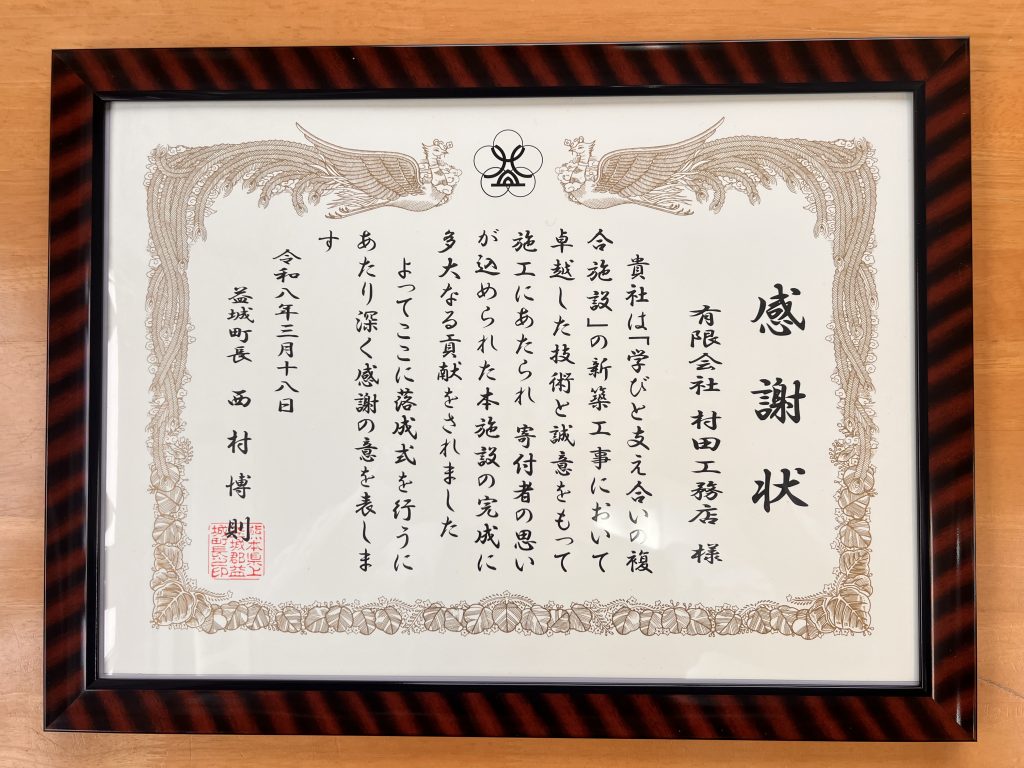 感謝状
有限会社 村田工務店 様
貴社は「学びと支え合いの複
合施設」の新築工事において
卓越した技術と誠意をもって
施工にあたられ 寄付者の思い
が込められた本施設の完成に
多大なる貢献をされました
よってここに落成式を行うに
あたり深く感謝の意を表しま
す
令和八年三月十八日
益城町長 西村博則
熊本県上
益城郡益
城町長印